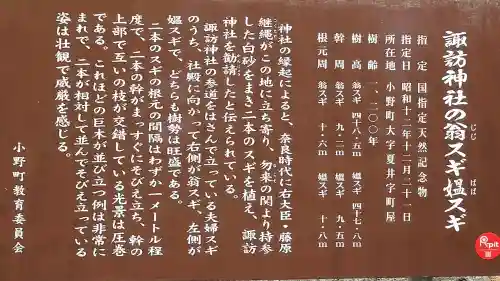 諏訪神社の翁スギ媼スギ
じじ
ばば
指定 国指定天然記念物
指定日 昭和十二年十二月二十一日
所在地 小野町大字夏井字町屋
樹齢 一、二〇〇年
樹高 翁スギ 四十八・五m 媼スギ 四十七・八m
幹周 翁スギ 九・二m 媼スギ 九・五m
根元周 翁スギ 十・六m 媼スギ 十・八m
神社の縁起によると、奈良時代に右大臣・藤原
継縄がこの地に立ち寄り、勿来の関より持参
した白砂をまき二本のスギを植え、諏訪
神社を勧請したと伝えられている。
諏訪神社の参道をはさんで立っている夫婦スギ
のうち、社殿に向かって右側が翁スギ、左側が
媼スギで、どちらも樹勢は旺盛である。
二本のスギの根元の間隔はわずか一メートル程
度で、二本の幹がまっすぐにそびえ立ち、幹の
上部で互いの枝が交錯している光景は圧巻
である。これほどの巨木が並び立つ例は非常に
まれで、二本が相対して並んでそびえ立っている
姿は壮観で威厳を感じる。
小野町教育委員会
Pipit